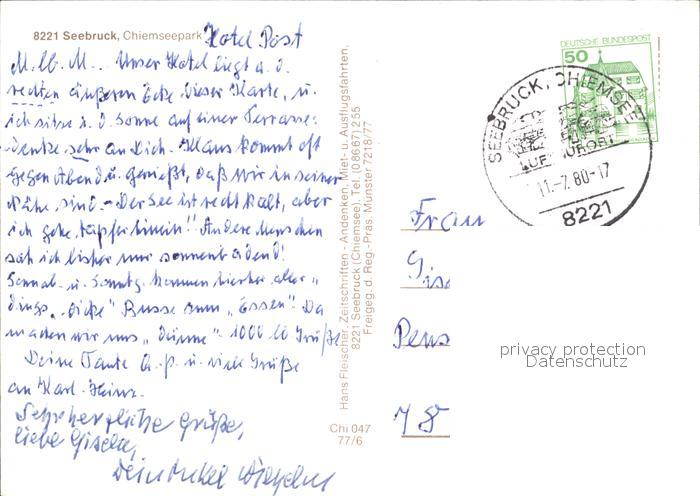 8221 Seebruck, Chiemseepark Hotel Post
M. lb. M.. Unser Hotel liegt a. d.
rechten äußeren Ecke dieser Karte, u.
ich sitze i. d. Sonne auf einer Terrasse:
denke sehr an Dich. Klaus kommt oft
gegen Abend u. genießt, daß wir in seiner
Nähe sind. - Der See ist recht kalt, aber
ich gehe tapfer hinein!! Andere Menschen
sah ich bisher nur sonnenbadend!
Sonnab. u. Sonntg. kommen hierher aller-
dings "dicke" Busse zum "Essen". Da
machen wir uns "dünne". 1000 lb Grüße
Deine Tante u. viele Grüße
an Karl-Heinz.
Sehr herzliche Grüße,
liebe Gisela,
Dein Onkel
Hans Fleischer, Zeitschriften - Andenken, Miet- u. Ausflugsfahrten,
8221 Seebruck (Chiemsee), Tel. (08667) 255
Freigeg. d. Reg.-Präs. Münster 7218/77
Chi 047
77/6
DEUTSCHE BUNDESPOST
50
SEEBRUCK, CHIEMSEE
LUFTKURORT
11.-7.80-17
8221
Frau
Gis
Pens
78
privacy protection
Datenschutz